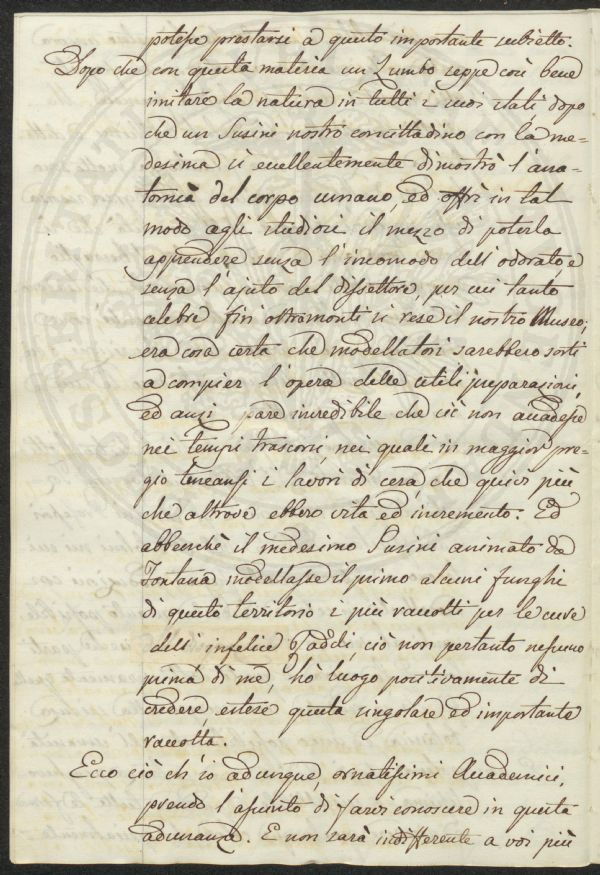 potesse prestarsi a questo importante subietto.
Dopo che con questa materia un Zumbo seppe così bene
imitare la natura in tutti i suoi stati, dopo
che un Susini nostro concittadino con la me=
desima sì eccellentemente dimostrò l'ana=
tomia del corpo umano, ed offrì in tal
modo agli studiosi il mezzo di poterla
apprendere senza l'incomodo dell'odorato, e
senza l'ajuto del dissettore, per cui tanto
celebre fin oltramonti si rese il nostro Museo;
era cosa certa che modellatori sarebbero sorti
a compier l'opera delle utili preparazioni,
ed anzi pare incredibile che ciò non accadesse
nei tempi trascorsi, nei quali in maggior pre=
gio teneansi i lavori di cera, che quivi più
che altrove ebbero vita ed incremento. Ed
abbenchè il medesimo Susini animato da
Fontana modellasse il primo alcuni funghi
di questo territorio i più raccolti per le cure
dell'infelice Raddi, ciò non pertanto nessuno
prima di me, hò luogo positivamente di
credere, estese questa singolare ed importante
raccolta.
Ecco ciò ch'io adunque, ornatissimi Accademici,
prendo l'assunto di farvi conoscere in questa
adunanza. E non sarà indifferente a voi più